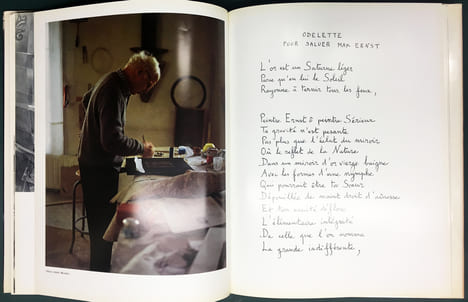 ODELETTE
POUR SALUER MAX ERNST
L'or est un Saturne léger
Parce qu'en lui le Soleil
Rayonne à ternir tous les feux,
Peintre Ernst ô peintre Sérieux
Ta gravité n'est pesante
Pas plus que l'éclat du miroir
Où le reflet de la Nature
Dans un miroir d'or vierge baigne
Avec les formes d'une nymphe
Qui pourrait être ta Soeur
Dépouillée de maint droit d'aînesse
Et ton amitié déflore
L'élémentaire intégrité
De celle que l'on nomme
La grande indifférente,